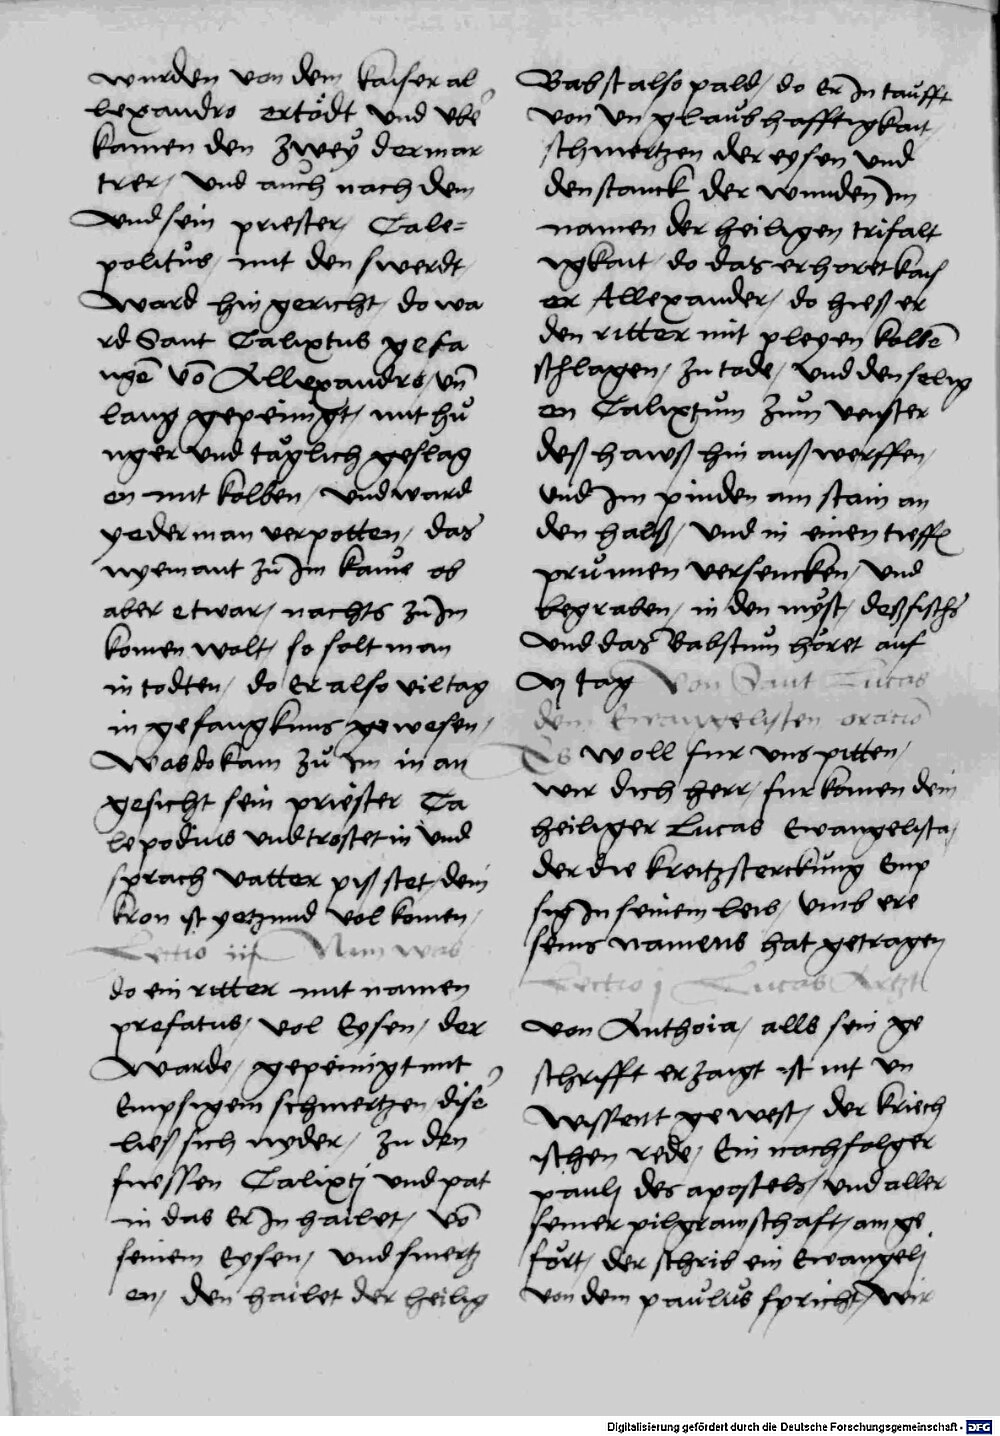 wurden von dem kaiser al
lexandro ertödt und vbe
kamen den zweÿ der mar
trer, und auch nach dem
Und sein priester, Cale=
politus, mit den swerdt,
Ward hin gericht, do wa
rd Sant Calixtus gefa
ngē vō Allexandro, vn̄
lang gepeinigt, mit hu
nger und täglich geslag
en mit kolben, und ward
yederman verpotten, das
nyemant zu Im kame ob
aber etwar, nachts zu Im
komen wolt, so solt man
in todten, do Er also vil tag
in gefangknus gewesen,
Was do kam zu Im in an
gesicht sein priester Ca
lepodius und trostet in und
sprach vatter piß stet, dein
kron ist yetzund volkomen,
Lectio iij Nun was
do ein ritter mit namen
prefatus, vol Eysen, der
Warde, gepeinigt mit
Empsigem schmertzen, dise
lies sich nyder, zu den
fuessen Calixtj und pat
in das Er In hailet, vō
seinem Eysen, und smertz
en, den hailet der heilig
Babst also pald, do Er In taufft
von vn glaubhafftigkait,
schmertzen der eysen und
den stanck der wunden Im
namen der heiligen trifalt
igkait, do das erhoret kais
er Allexander, do hieß er
den ritter mit pleyen kolbē
schlagen, zu tode, und den selig
en Calixtum zum venster
deß hawß hin auß werffen,
und Im pinden am stain an
den halß, und in einen tieffē
prunnen versencken, und
begraben, in den myst, deß fischs
und das Babstum höret auf
vj tag Von Sant Lucas
dem Ewangelisten oracio
Es woll fur uns pitten,
wir dich herr, furkomen dein
heiliger Lucas Ewangelista,
der die kreitzsterckung Emp
sig In seinem leib, umb ere
seins namens hat getragen
Lectio j Lucas Artzt
von Anthoia, alls sein ge
schrifft erzaigt ist nit vn
wissent gewest, der kriech
ischen rede, Ein nachfolger
paulj des apostels, und aller
seiner pilgramschaft, am ge
fört, der schrib ein Ewangelj
von dem paulus spricht, Wir
Digitalisierung gefördert durch die Deutsche Forschungsgemeinschaft - DFG